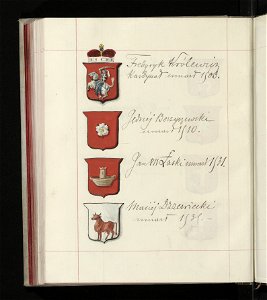 Fryderyk Królewicz
Kardynał umarł 1503.
Jędrzej Boryszewski
umarł 1510.
Jan Łaski umarł 1531.
Maciej Drzewiecki
umarł 1535.